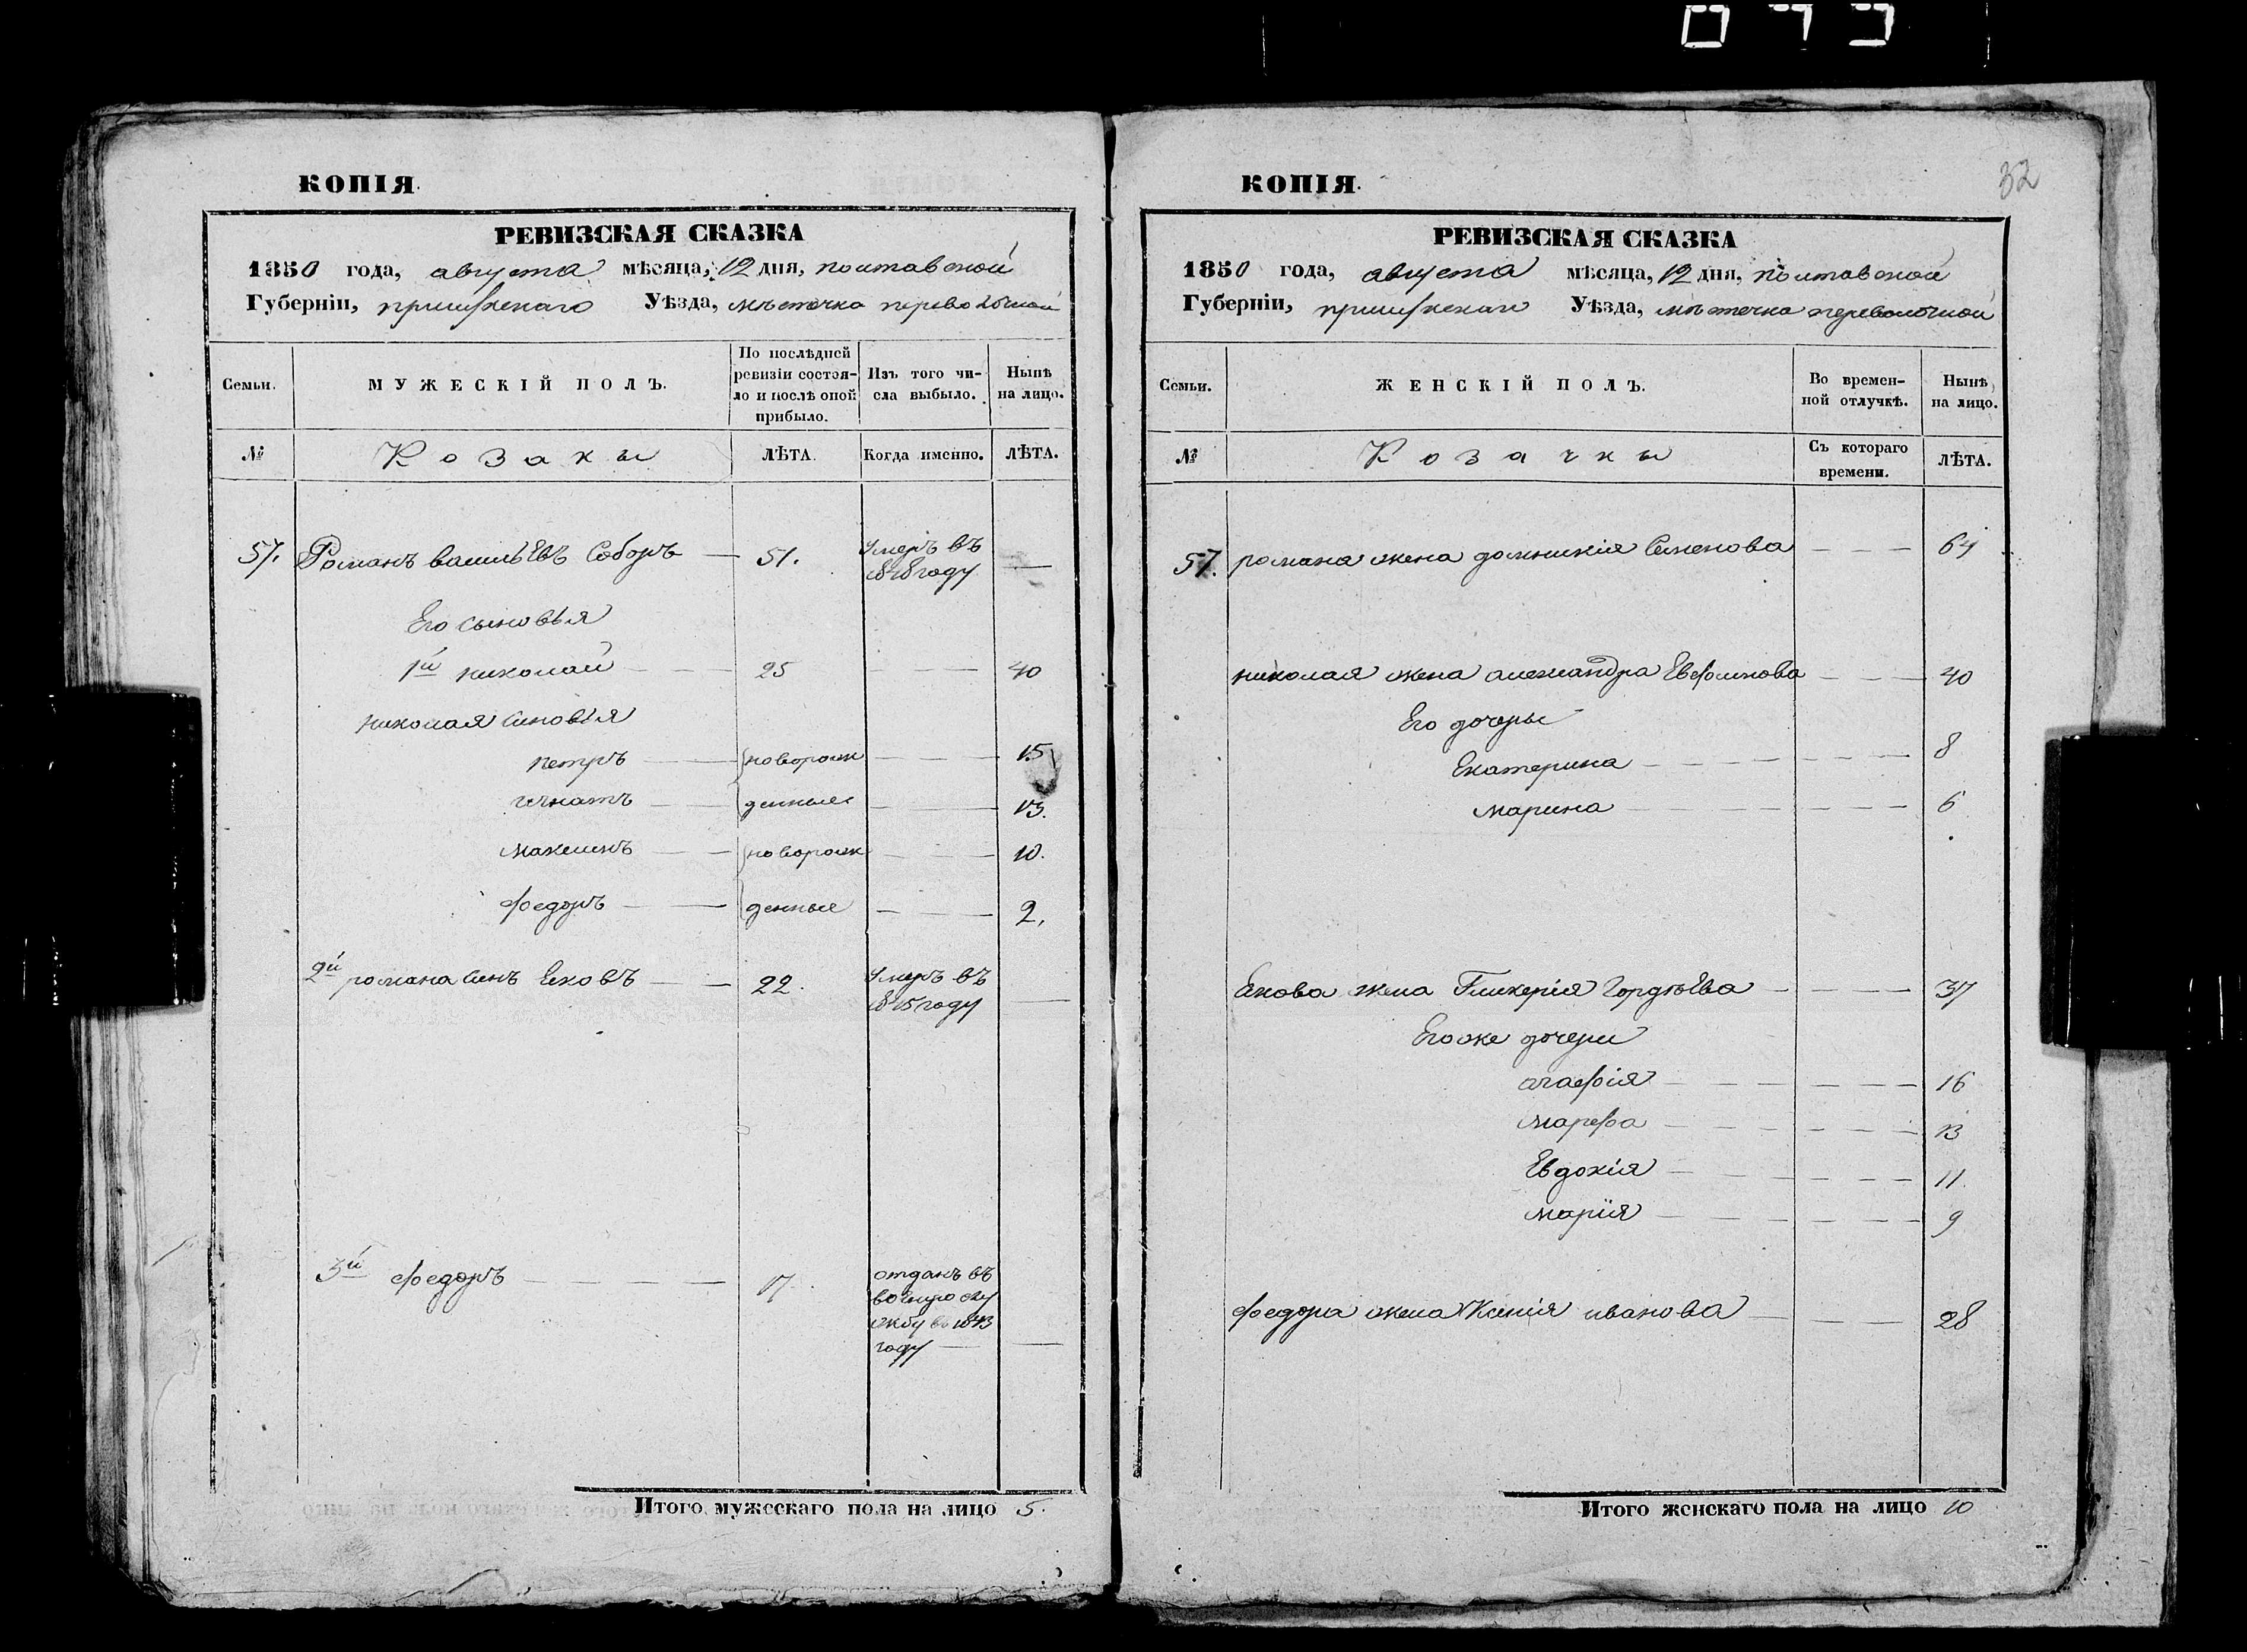 КОПІЯ.
РЕВИЗСКАЯ СКАЗКА
1850 года, августа мѣсяца, 12 дня, полтавской
Губерніи, Уѣзда, мѣстечка переволочной
Семьи. МУЖЕСКІЙ ПОЛЪ. По послѣдней ревизіи состояло и послѣ оной прибыло. Изъ того числа выбыло. Нынѣ на лицо.
№ Козаки ЛѢТА. Когда именно. ЛѢТА.
57. Романъ васильЕвъ Соборъ — 51. Умеръ въ 1848 году —
Его сыновья
1й николай — 25 — 40
николая синовья
петръ — новорож — 15
игнатъ — денные — 13.
новорож — 10.
федоръ — денные — 2.
2й романа синъ Ековъ — 22. Умеръ въ 1845 году —
3й федоръ — 17. отданъ въ
воєнную слу
жбу въ 1843
году — —
Итого мужескаго пола на лицо 5.
КОПІЯ.
32
РЕВИЗСКАЯ СКАЗКА
1850 года, августа мѣсяца, 12 дня, полтавской
Губерніи, Уѣзда, мѣстечка переволочной
Семьи. ЖЕНСКІЙ ПОЛЪ. Во временной отлучкѣ. Нынѣ на лицо.
№ Козачки Съ котораго времени. ЛѢТА.
57. романа жена домникія Семенова — 64
николая жена александра Евфимова — 40
Его дочеры
Екатерина — 8
марина — 6
Екова жена Гликерія ГордѣЕва — 37
Егоже дочери
агафія — 16
марфа — 13
Евдокія — 11.
марія — 9
федора жена Ксенія иванова — 28
Итого женскаго пола на лицо 10